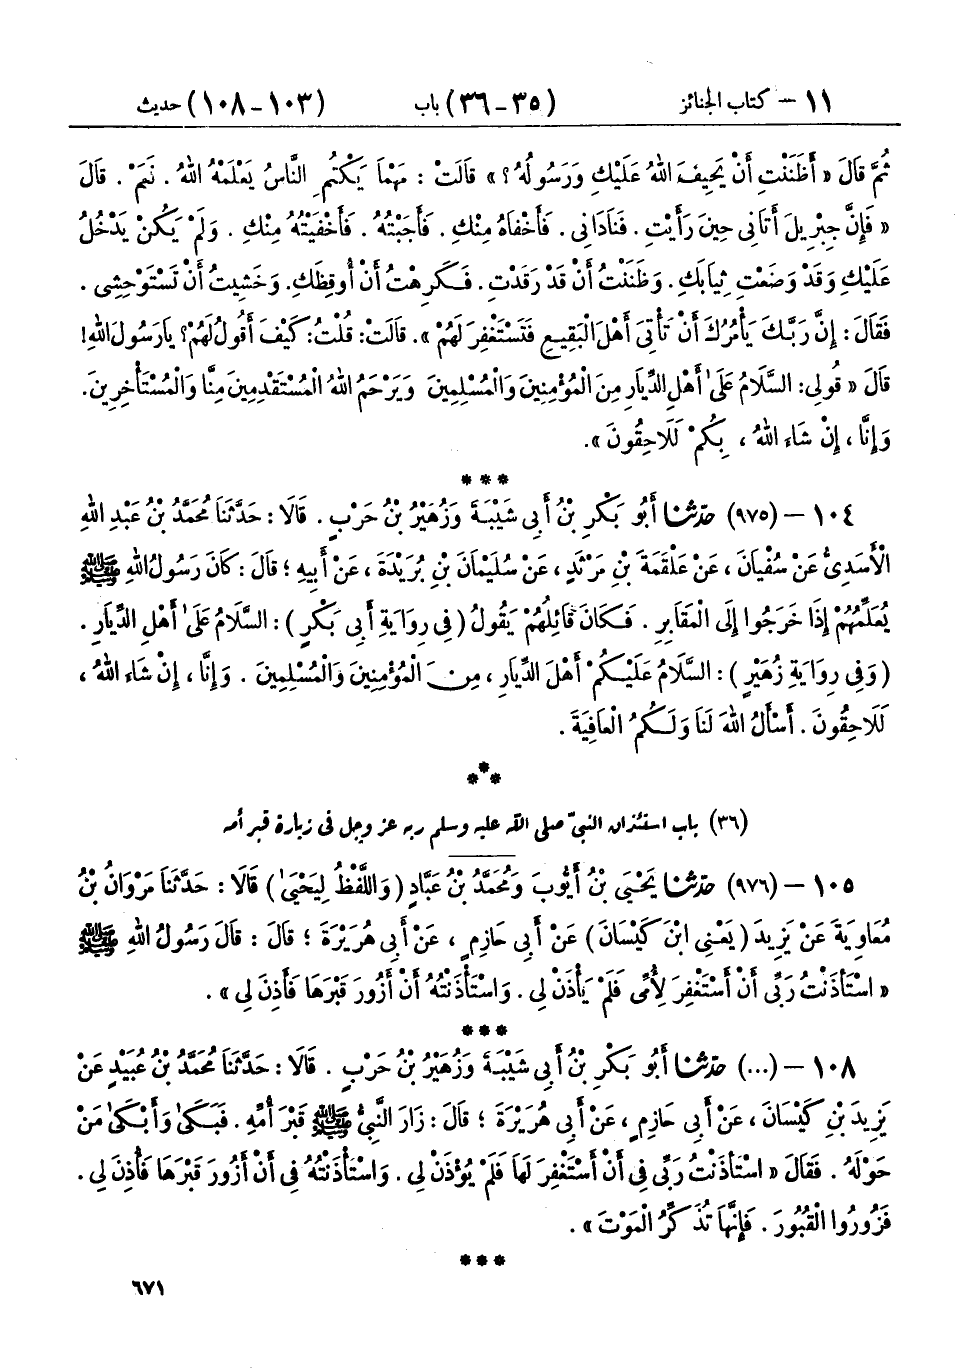 ١١ – كتاب الجنائز (٣٥ – ٣٦) باب (١٠٣ – ١٠٨) حديث
ثُمَّ قَالَ « أَظَنَنْتِ أَنْ يَحِيفَ اللهُ عَلَيْكِ وَرَسُولُهُ ؟ » قَالَتْ : مَهْمَا يَكْتُمِ النَّاسُ يَعْلَمْهُ اللهُ . نَعَمْ . قَالَ
« فَإِنَّ جِبْرِيلَ أَتَانِي حِينَ رَأَيْتِ . فَنَادَانِي . فَأَخْفَاهُ مِنْكِ . فَأَجَبْتُهُ . فَأَخْفَيْتُهُ مِنْكِ . وَلَمْ يَكُنْ يَدْخُلُ
عَلَيْكِ وَقَدْ وَضَعْتِ ثِيَابَكِ . وَظَنَنْتُ أَنْ قَدْ رَقَدْتِ . فَكَرِهْتُ أَنْ أُوقِظَكِ . وَخَشِيتُ أَنْ تَسْتَوْحِشِي .
فَقَالَ : إِنَّ رَبَّكَ يَأْمُرُكَ أَنْ تَأْتِيَ أَهْلَ الْبَقِيعِ فَتَسْتَغْفِرَ لَهُمْ » . قَالَتْ : قُلْتُ : كَيْفَ أَقُولُ لَهُمْ ؟ يَا رَسُولَ اللهِ !
قَالَ « قُولِي : السَّلَامُ عَلَىٰ أَهْلِ الدِّيَارِ مِنَ الْمُؤْمِنِينَ وَالْمُسْلِمِينَ وَيَرْحَمُ اللهُ الْمُسْتَقْدِمِينَ مِنَّا وَالْمُسْتَأْخِرِينَ .
وَإِنَّا ، إِنْ شَاءَ اللهُ ، بِكُمْ لَلَاحِقُونَ » .
***
١٠٤ – (٩٧٥) حَدَّثَنَا أَبُو بَكْرِ بْنُ أَبِي شَيْبَةَ وَزُهَيْرُ بْنُ حَرْبٍ . قَالَا : حَدَّثَنَا مُحَمَّدُ بْنُ عَبْدِ اللهِ
الْأَسَدِيُّ عَنْ سُفْيَانَ ، عَنْ عَلْقَمَةَ بْنِ مَرْثَدٍ ، عَنْ سُلَيْمَانَ بْنِ بُرَيْدَةَ ، عَنْ أَبِيهِ ؛ قَالَ : كَانَ رَسُولُ اللهِ ﷺ
يُعَلِّمُهُمْ إِذَا خَرَجُوا إِلَى الْمَقَابِرِ . فَكَانَ قَائِلُهُمْ يَقُولُ ( فِي رِوَايَةِ أَبِي بَكْرٍ ) : السَّلَامُ عَلَىٰ أَهْلِ الدِّيَارِ .
( وَفِي رِوَايَةِ زُهَيْرٍ ) : السَّلَامُ عَلَيْكُمْ أَهْلَ الدِّيَارِ ، مِنَ الْمُؤْمِنِينَ وَالْمُسْلِمِينَ . وَإِنَّا ، إِنْ شَاءَ اللهُ ،
لَلَاحِقُونَ . أَسْأَلُ اللهَ لَنَا وَلَكُمُ الْعَافِيَةَ .
***
(٣٦) باب استئذان النبيّ صلى الله عليه وسلم ربه عز وجل فى زيارة قبر أمه
١٠٥ – (٩٧٦) حَدَّثَنَا يَحْيَى بْنُ أَيُّوبَ وَمُحَمَّدُ بْنُ عَبَّادٍ ( وَاللَّفْظُ لِيَحْيَىٰ ) قَالَا : حَدَّثَنَا مَرْوَانُ بْنُ
مُعَاوِيَةَ عَنْ يَزِيدَ ( يَعْنِي ابْنَ كَيْسَانَ ) عَنْ أَبِي حَازِمٍ ، عَنْ أَبِي هُرَيْرَةَ ؛ قَالَ : قَالَ رَسُولُ اللهِ ﷺ
« اسْتَأْذَنْتُ رَبِّي أَنْ أَسْتَغْفِرَ لِأُمِّي فَلَمْ يَأْذَنْ لِي . وَاسْتَأْذَنْتُهُ أَنْ أَزُورَ قَبْرَهَا فَأَذِنَ لِي » .
***
١٠٨ – (...) حَدَّثَنَا أَبُو بَكْرِ بْنُ أَبِي شَيْبَةَ وَزُهَيْرُ بْنُ حَرْبٍ . قَالَا : حَدَّثَنَا مُحَمَّدُ بْنُ عُبَيْدٍ عَنْ
يَزِيدَ بْنِ كَيْسَانَ ، عَنْ أَبِي حَازِمٍ ، عَنْ أَبِي هُرَيْرَةَ ؛ قَالَ : زَارَ النَّبِيُّ ﷺ قَبْرَ أُمِّهِ . فَبَكَىٰ وَأَبْكَىٰ مَنْ
حَوْلَهُ . فَقَالَ « اسْتَأْذَنْتُ رَبِّي فِي أَنْ أَسْتَغْفِرَ لَهَا فَلَمْ يُؤْذَنْ لِي . وَاسْتَأْذَنْتُهُ فِي أَنْ أَزُورَ قَبْرَهَا فَأُذِنَ لِي .
فَزُورُوا الْقُبُورَ . فَإِنَّهَا تُذَكِّرُ الْمَوْتَ » .
***
٦٧١